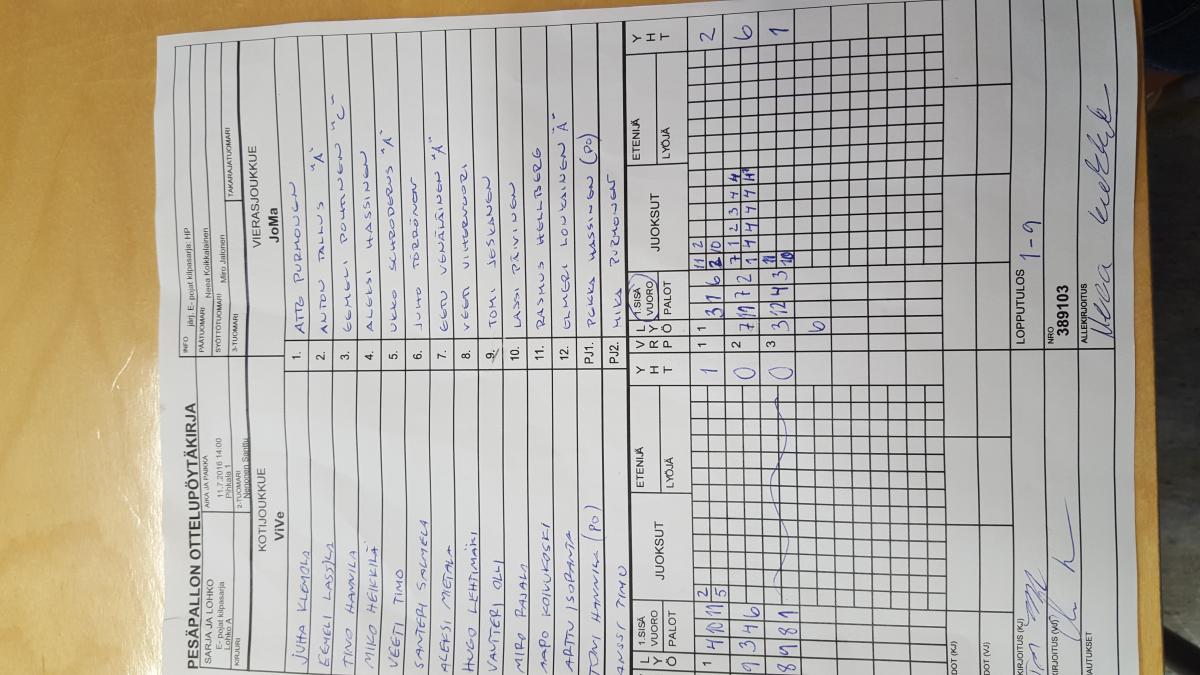 PESÄPALLON OTTELUPÖYTÄKIRJA
SARJA JA LOHKO
E- pojat kilpasarja
Lohko A
AIKA JA PAIKKA
11.7.2016 14:00
Pihkala 1
KIRJURI
2-TUOMARI
Nenonen Santtu
INFO järj. E- pojat kilpasarja: HP
PÄÄTUOMARI Neea Koikkalainen
SYÖTTÖTUOMARI Miro Jalonen
3-TUOMARI
TAKARAJATUOMARI
KOTIJOUKKUE
ViVe
VIERASJOUKKUE
JoMa
JUHA KLEMOLA 1. ATTE PURMONEN
EEMELI LASSILA 2. ANTON TALLUS "A"
TINO HANNILA 3. EEMELI POUTANEN "C"
MIKO HEIKKILÄ 4. ALEKSI HASSINEN
VEETI TIMO 5. UKKO SCHRODERUS "A"
SANTERI SALMELA 6. JUHO TÖRRÖNEN
ALEKSI METALA 7. EETU VENÄLÄINEN "A"
HUGO LEHTIMÄKI 8. VEETI VIHERVUORI
VALTTERI OLLI 9. TOMI JESKANEN
MIRO RAJALA 10. LASSI PÄIVINEN
AAPO KOIVUKOSKI 11. RASMUS HELLBERG
ARTTU ISORANTA 12. ELMERI LOUKAINEN "A"
TOMI HANNILA (PO) PJ1. PEKKA HASSINEN (PO)
ANSSI TIMO PJ2. MIKA PURMONEN
L Y Ö 1.SISÄ VUORO PALOT JUOKSUT ETENIJÄ LYÖJÄ Y H T V R P L Y Ö 1.SISÄ VUORO PALOT JUOKSUT ETENIJÄ LYÖJÄ Y H T
1 4 10 11 2 5 1 1 1 3 7 6 11 2 2 10 2
9 3 4 6 0 2 7 11 7 2 7 1 2 3 4 4 1 4 4 4 4 6
8 9 8 1 0 3 3 12 4 3 11 10 1
6
LOPPUTULOS 1-9
NRO
389103
ALLEKIRJOITUS